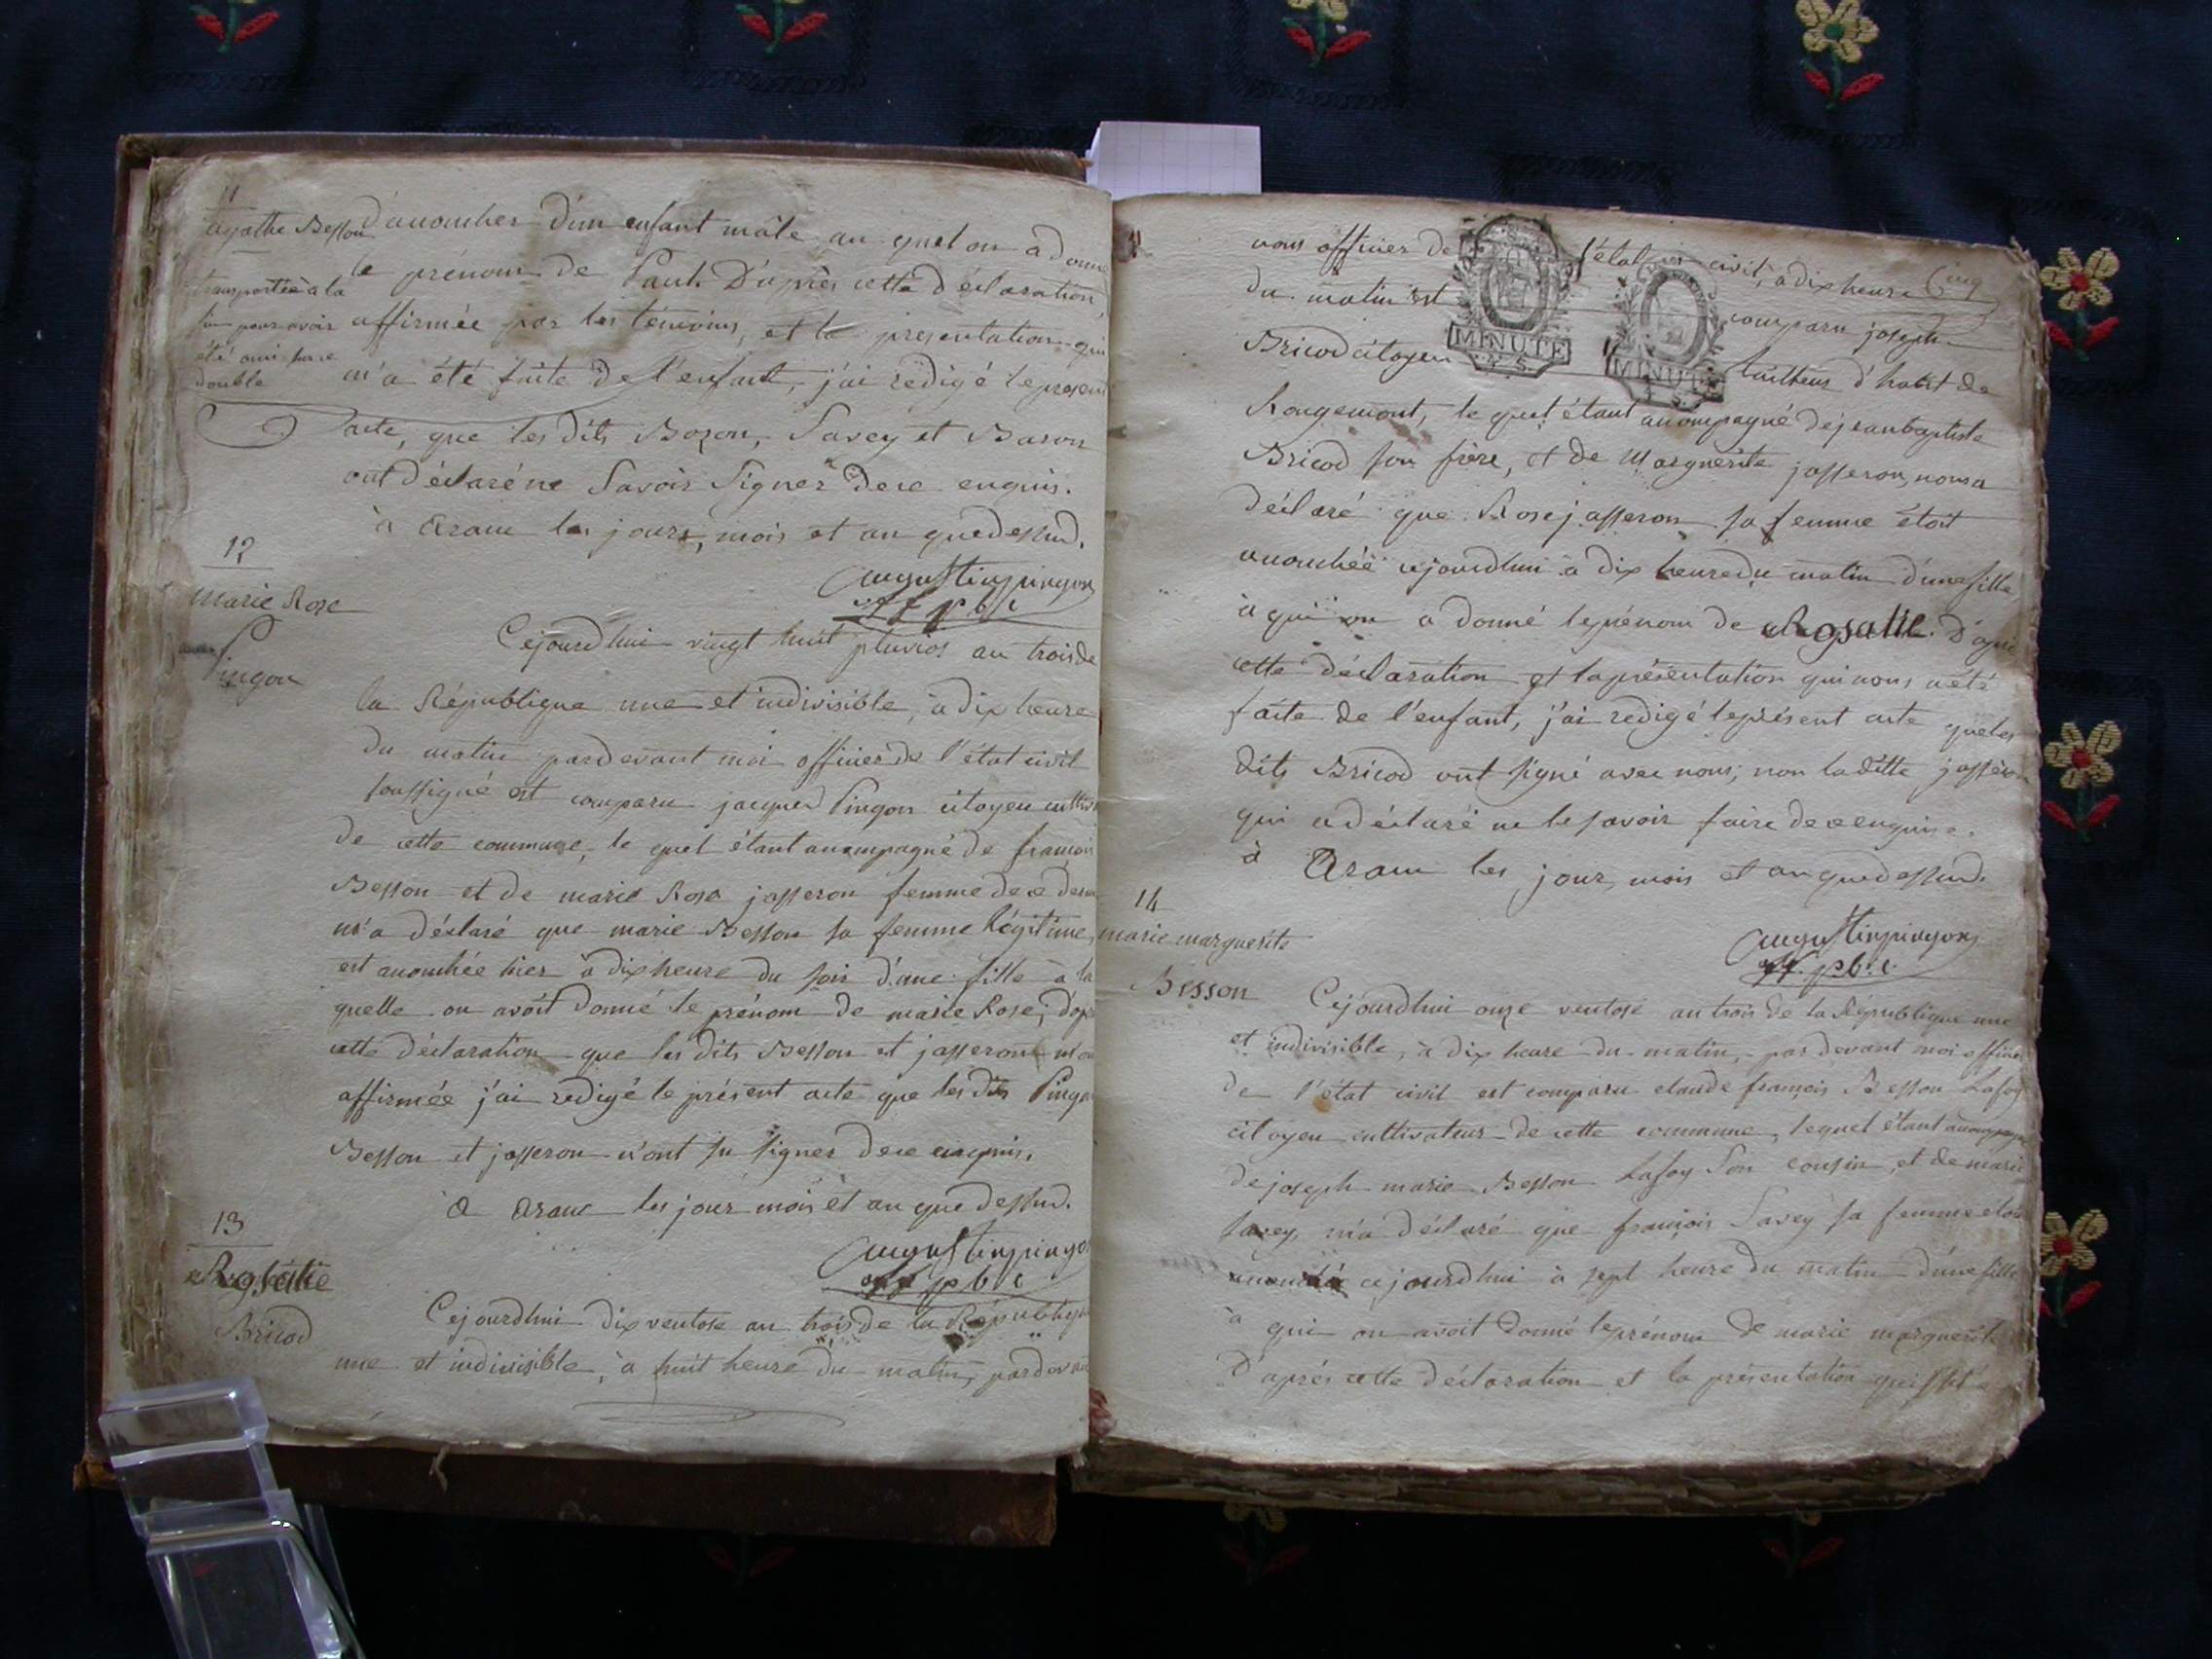 11
agathe Besson
transportée à la
fin pour avoir
été omi sur ce
double
d'accoucher d'un enfant mâle au quel on a donné
le prénom de Paul. D'après cette déclaration
affirmée par les témoins, et la presentation qui
m'a été faite de l'enfant, j'ai redigé le present
acte, que les dits Bozon, Savey et Baron
ont déclaré ne Savoir Signer de ce enquis.
à Aranc les jours, mois et an que dessus.
augustin pingon
12
Marie Rose
Pingon
Cejourdhui vingt huit pluvios an trois de
la République une et indivisible, à dix heure
du matin pardevant moi officier de l'état civil
soussigné est comparu jacques Pingon citoyen
de cette commune, le quel étant accompagné de françois
Besson et de marie Rose josseron femme de ce
m'a déclaré que marie Besson sa femme légitime,
est accouchée hier à dix heure du soir d'une fille à la
quelle on avoit donné le prénom de marie Rose, d'après
cette déclaration que les dits Besson et josseron m'ont
affirmée j'ai redigé le présent acte que les dits Pingon
Besson et josseron n'ont su signer de ce enquis.
à aranc les jour mois et an que dessus.
augustin pingon
13
Rosalie
Bricod
Cejourdhui dix ventose an trois de la République
une et indivisible, à huit heure du matin, pardevant
nous officier de l'état civil, à dix heure
Cinq
du matin est comparu joseph
Bricod citoyen tailleur d'habit de
MINUTE
MINUTE
Rougemont, le quel étant accompagné de jeanbaptiste
Bricod son frère, et de Marguerite josseron, nous a
déclaré que Rose josseron sa femme étoit
accouchée cejourdhui à dix heure du matin d'une fille
à qui on a donné le prénom de Rosalie. D'après
cette déclaration et la présentation qui nous a été
faite de l'enfant, j'ai redigé le présent acte que les
dits Bricod ont signé avec nous, non la ditte josseron
qui a déclaré ne le savoir faire de ce enquise.
à Aranc les jour, mois et an que dessus.
augustin pingon
14
marie marguerite
Besson
Cejourdhui onze ventose an trois de la République une
et indivisible, à dix heure du matin, par devant moi officier
de l'état civil est comparu claude françois Besson Lafoy
citoyen cultivateur de cette commune, lequel étant accompagné
de joseph marie Besson Lafoy Son cousin, et de marie
Savey, m'a déclaré que françois Savey sa femme étoit
accouchée cejourdhui à sept heure du matin d'une fille
à qui on avoit donné le prénom de marie marguerite
D'après cette déclaration et la présentation